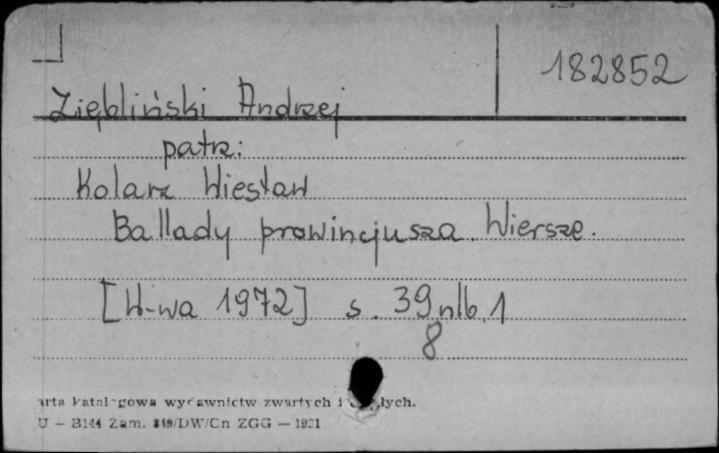 182852
Ziębliński Andrzej
patrz:
Kolarz Wiesław
Ballady prowincjusza. Wiersze.
[W-wa 1972] s. 39 nlb. 1
8
arta katalogowa wydawnictw zwartych i
U — B144 Zam. /DW/Cn ZGG —